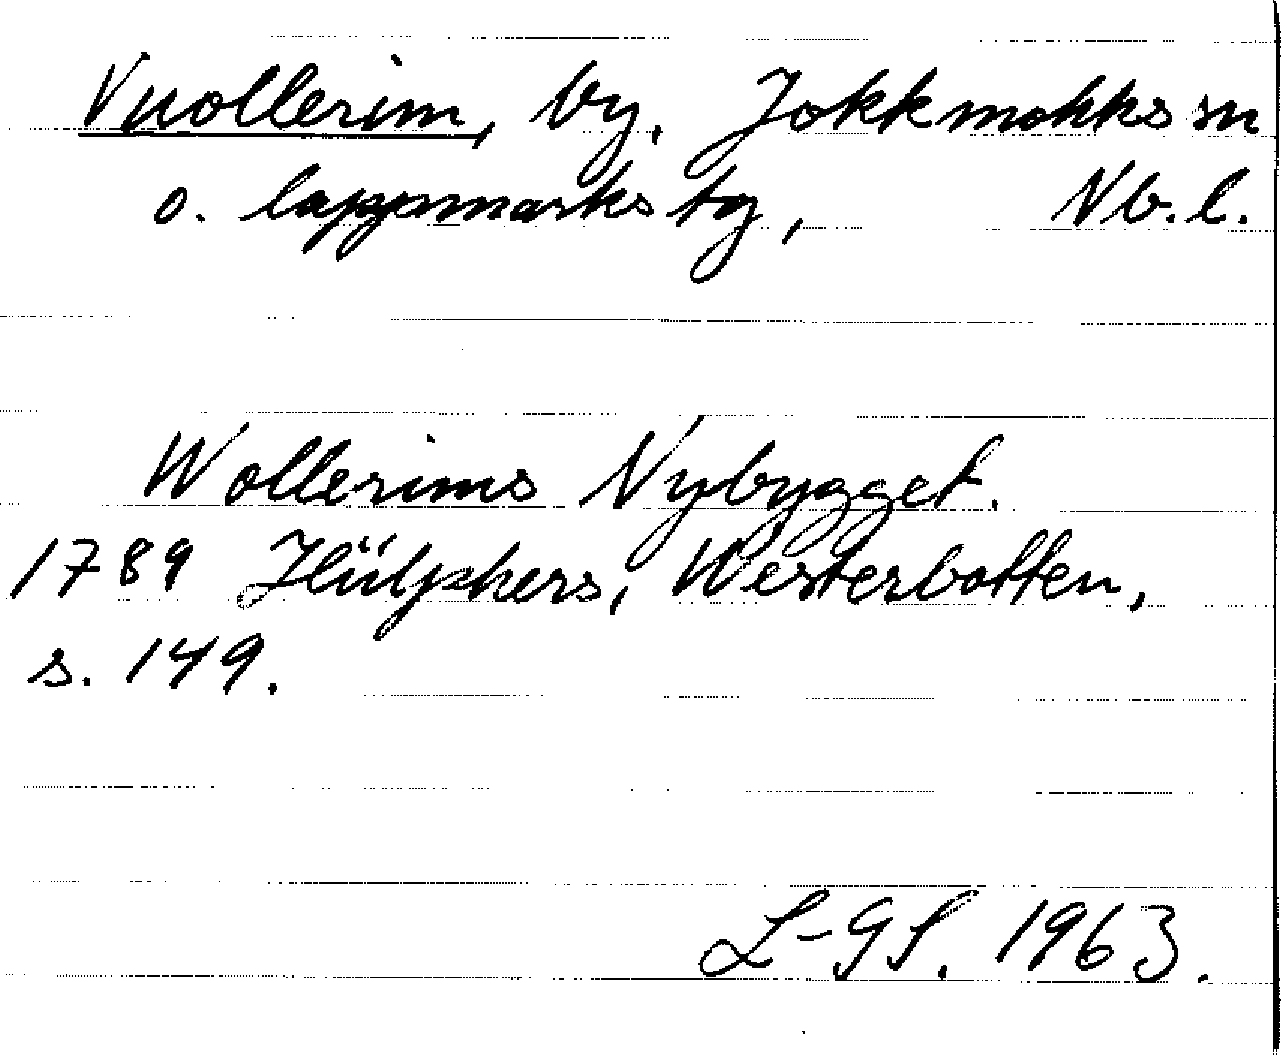 Vuollerim, by, Jokkmokks sn
o. lappmarks tg, Nb.l.
Wollerims Nybygget.
1789 Hülphers, Westerbotten,
s. 149.
L-GS. 1963.